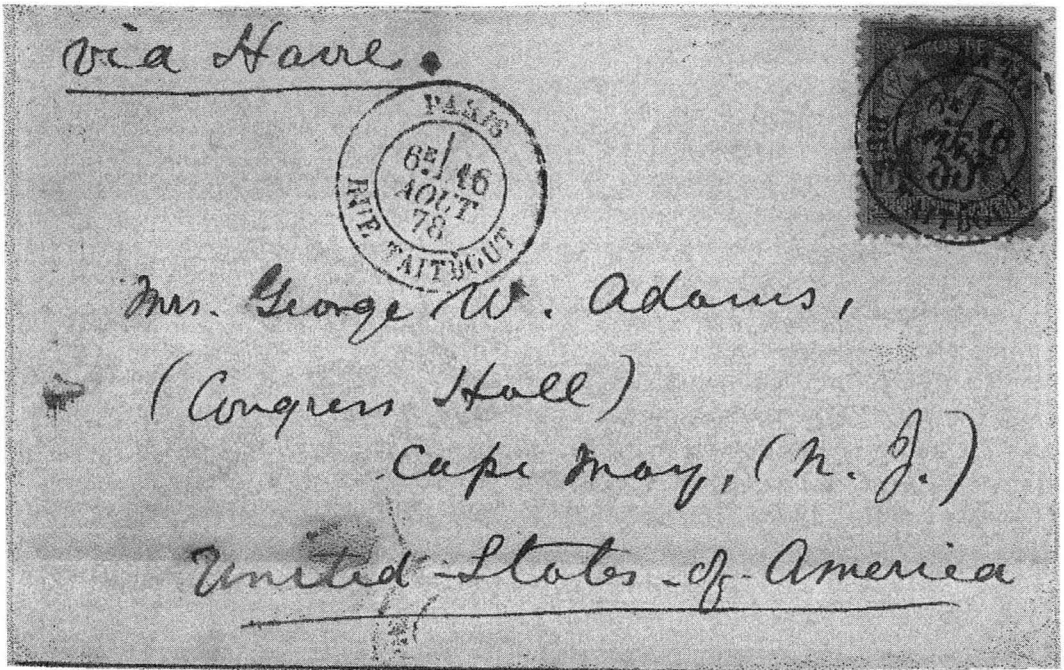 via Havre.
PARIS
6E/ 16
AOUT
78
RUE TAITBOUT
POSTE
PARIS
RUE TAITBOUT
Mrs. George W. Adams,
(Congress Hall)
Cape May, (N. J.)
United-States-of-America